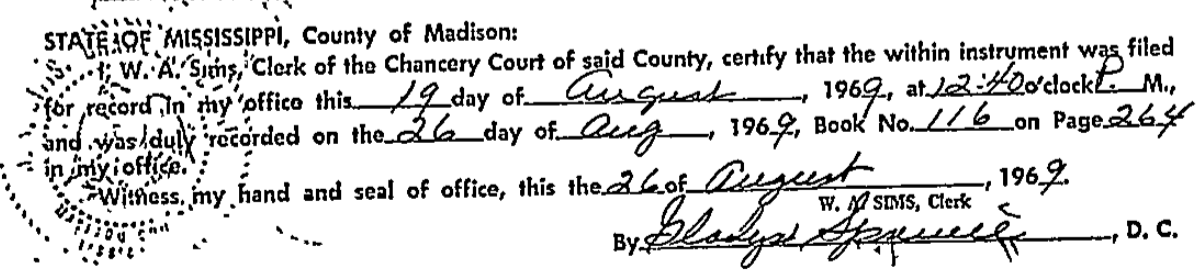 STATE OF MISSISSIPPI, County of Madison:
I, W. A. Sims, Clerk of the Chancery Court of said County, certify that the within instrument was filed
for record in my office this 19 day of August, 1969, at 12:40 o'clock P. M.,
and was duly recorded on the 26 day of Aug, 1969, Book No. 116 on Page 264
in my office.
Witness my hand and seal of office, this the 26 of August, 1969.
W. A. SIMS, Clerk
By Gladys Spruill, D. C.